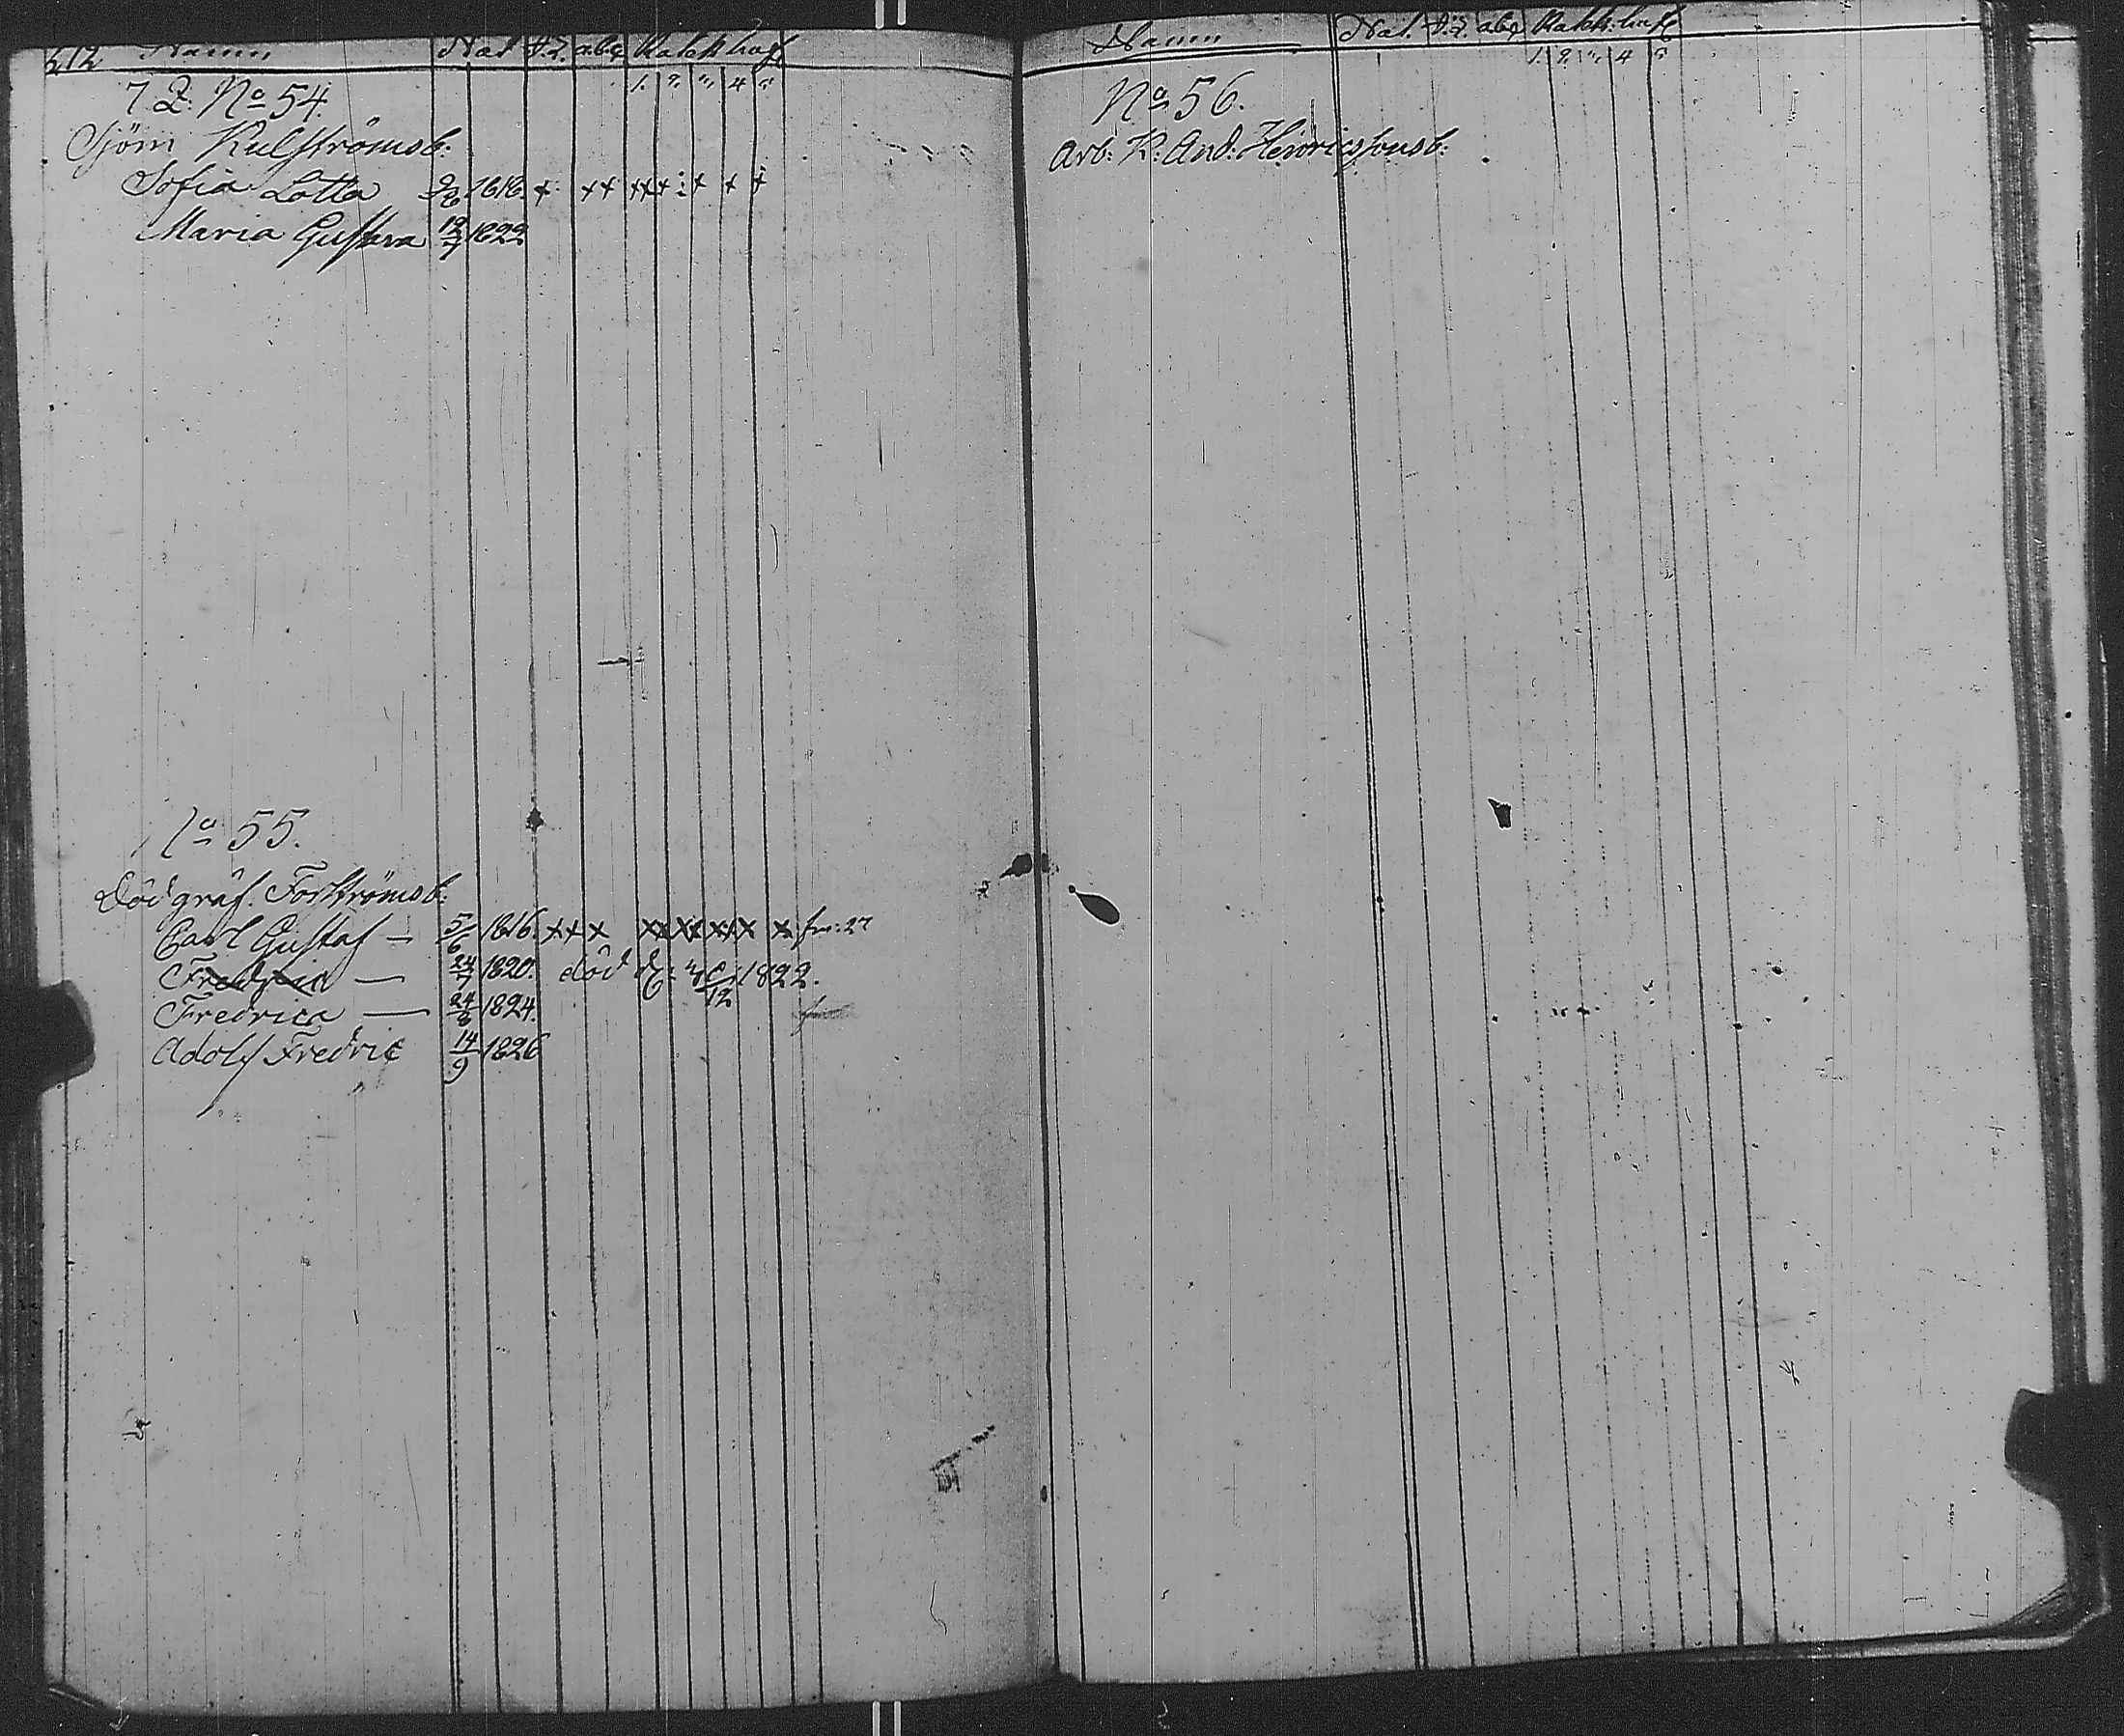 212 Namn Nat. abc Katek: hufs
1. 2. 4
7 Q: No 54.
Sjöm Kulströmsb:
Sofia Lotta 1816. x xx xxx x x x
Maria Gustava 19/7 1822
No 55.
Dödgräf. Forströmsb:
Carl Gustaf — 5/6 1816. xx x xx xx xx x x
Fredric — 24/7 1820. död 1822.
Fredrica — 24/8 1824.
Adolf Fredric 14/9 1826
Namn Nat. abc Katek: hufs
1. 2. 4
No 56.
Arb: K: And: Henricssonsb: